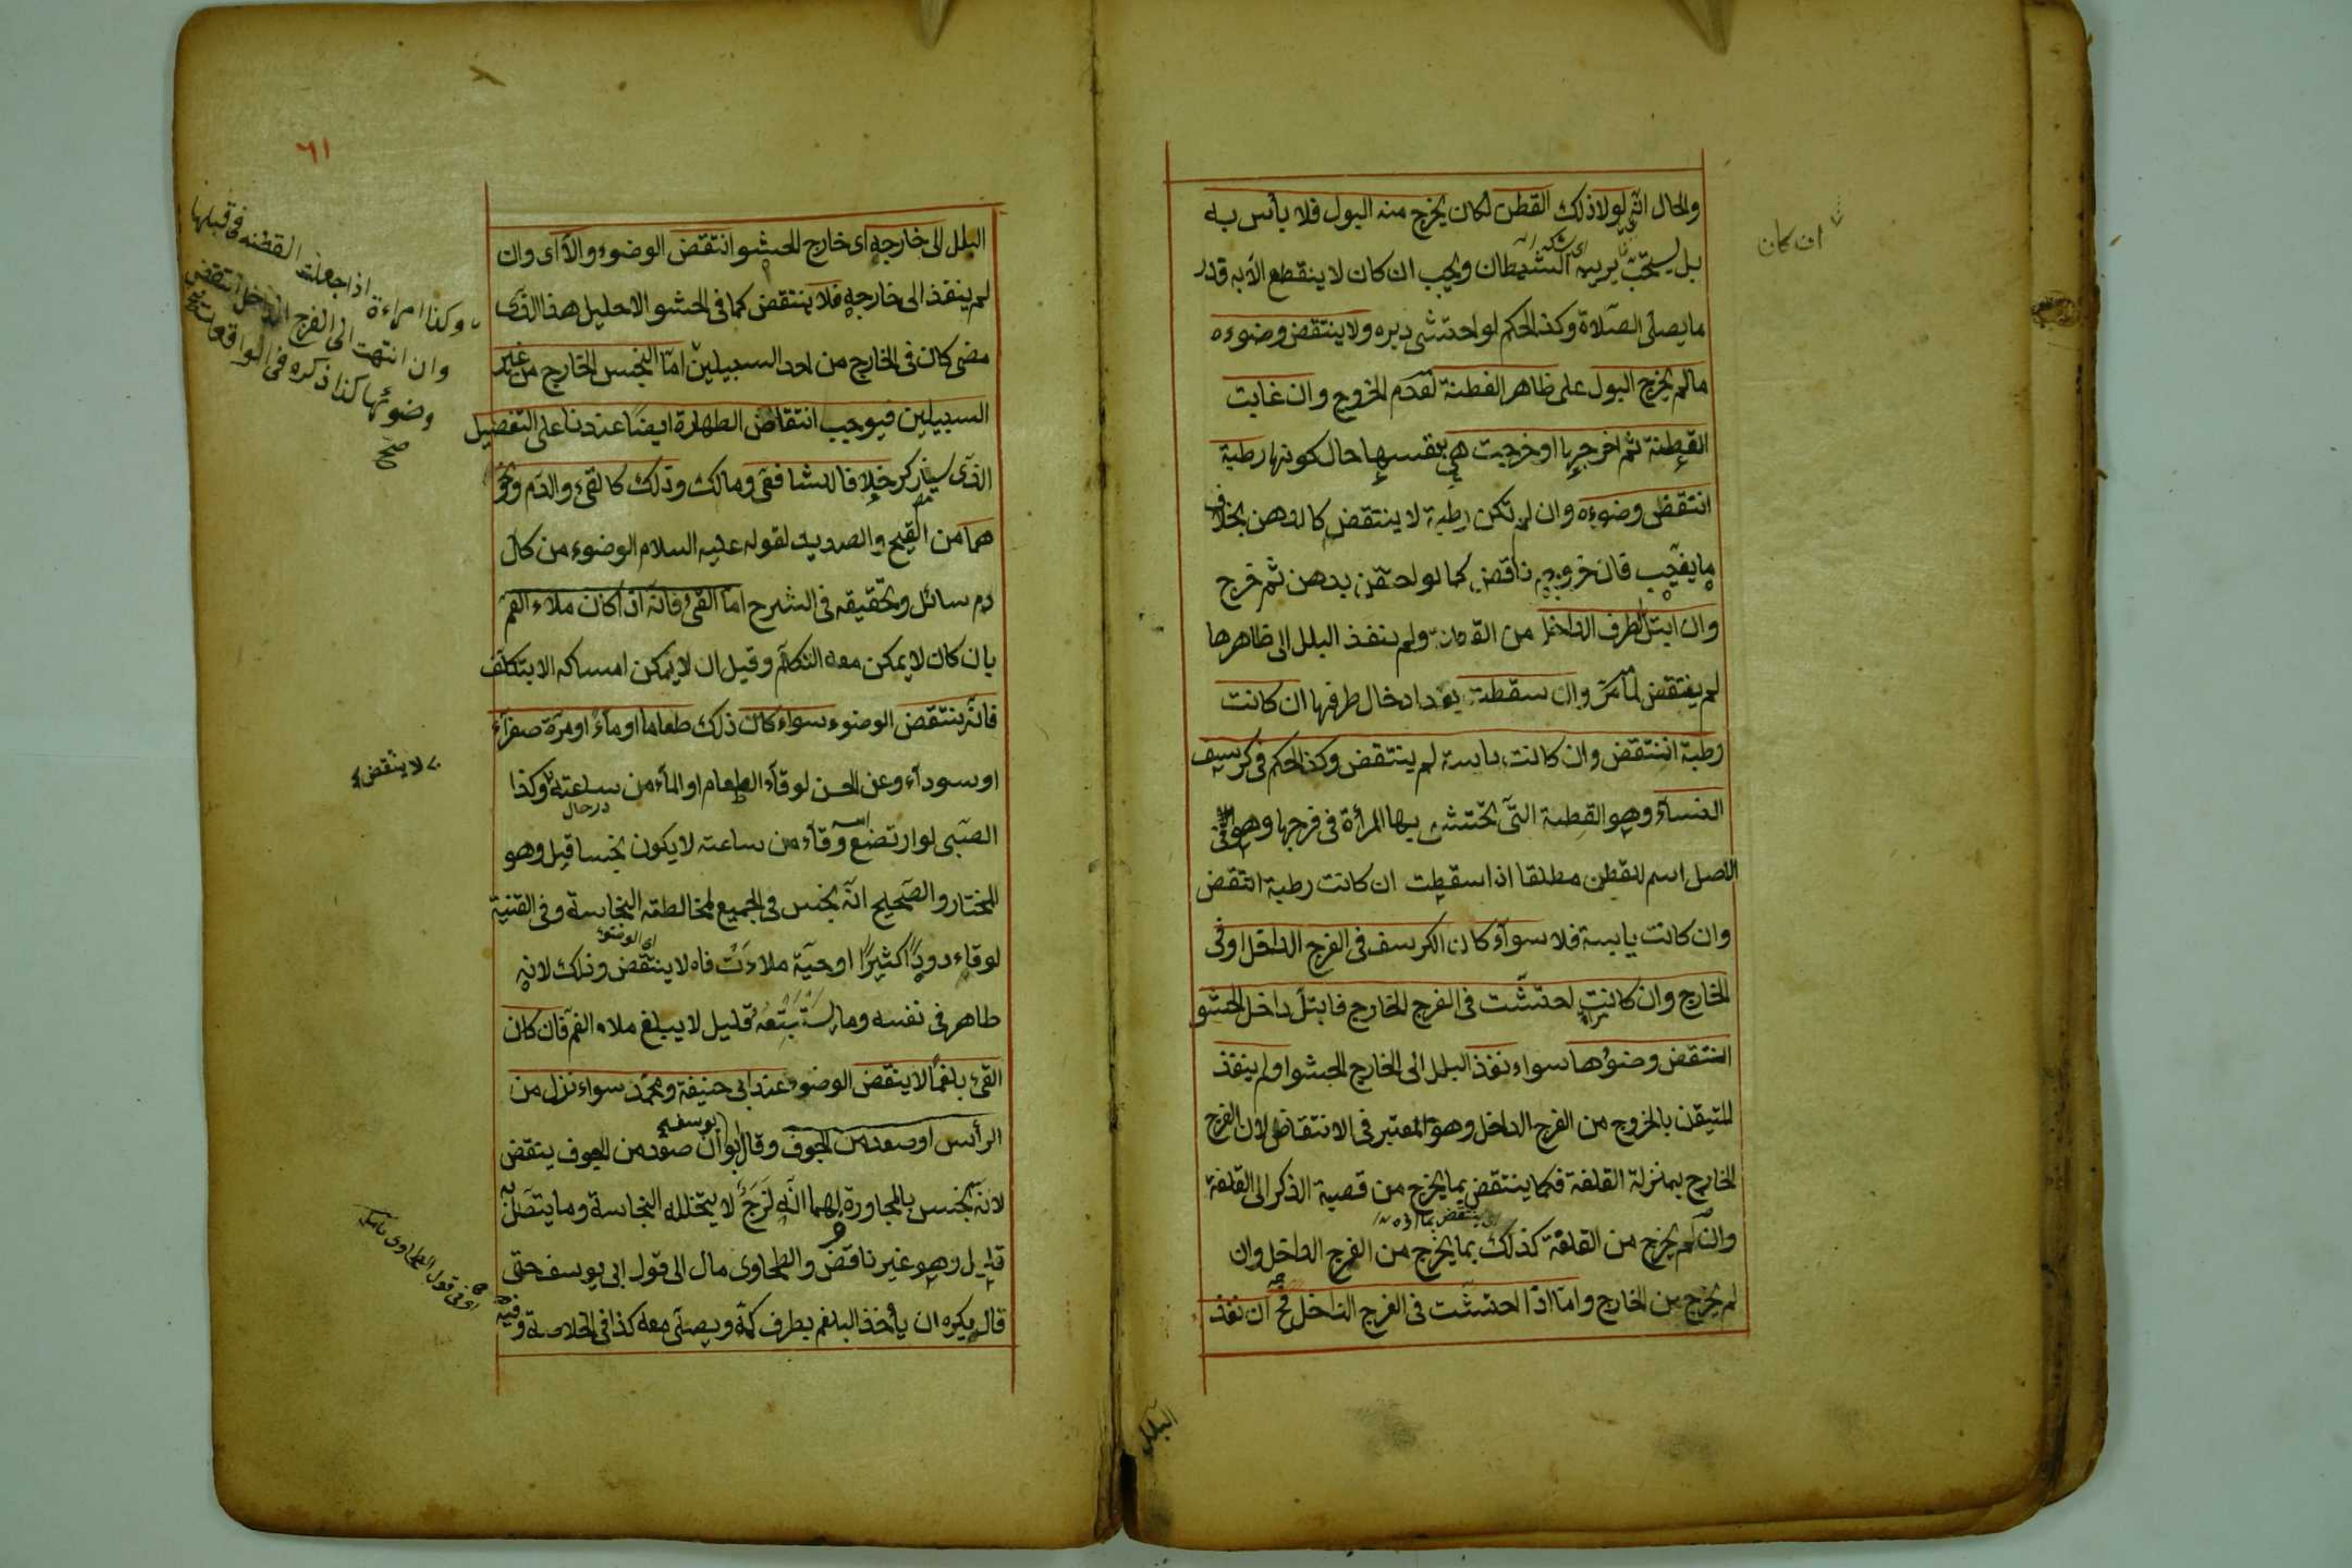 والحال انّه لولا ذلك القطن لكان يخرج منه البول فلا بأس به
بل يستحبّ يريبه الشيطان ويجب ان كان لا ينقطع الا به قدر
ان كان
ما يصلى الصّلاة وكذا الحكم لو احتشى دبره ولا ينتقض وضوءه
مالم يخرج البول على ظاهر القطنة لعدم الخروج وان غابت
القطنة ثم اخرجها او خرجت هى بنفسها حال كونها رطبة
انتقض وضوءه وان لم تكن رطبة لا ينتقض كالدهن بخلاف
ما يغيب فان خروجه ناقض كما لو احتقن بدهن ثم خرج
وان ابتلّ الطرف الداخل من القطنة ولم ينفذ البلل الى ظاهرها
لم ينتقض لما مرّ وان سقطة بعد ادخال طرفها ان كانت
رطبة انتقض وان كانت يابسة لم ينتقض وكذا الحكم فى كرسف
النساء وهو القطنة التى تحتشى بها المرأة فى فرجها وهو فى
الاصل اسم للقطن مطلقا اذا سقطت ان كانت رطبة انتقض
وان كانت يابسة فلا سوآء كان الكرسف فى الفرج الداخل او فى
الخارج وان كانت احتشّت فى الفرج الخارج فابتلّ داخل الحشو
انتقض وضوءها سواء نفذ البلل الى الخارج الحشو او لم ينفذ
للتيقن بالخروج من الفرج الداخل وهو المعتبر فى الانتقاض لان الفرج
الخارج بمنزلة القلفة فكما ينتقض بما يخرج من قصبة الذكر الى القلفة
وان لم يخرج من القلفة كذلك بما يخرج من الفرج الداخل وان
لم يخرج من الخارج وامّا اذا احتشّت فى الفرج الداخل فح ان نفذ
البلل
٦١
البلل الى خارجه اى خارج الحشو انتقض الوضوء والّا اى وان
لم ينفذ الى خارجه فلا ينتقض كما فى الحشو الاحليل هذا الذى
مضى كان فى الخارج من احد السبيلين امّا النجس الخارج من غير
السبيلين فيوجب انتقاض الطهارة ايضًا عندنا على التفصيل
الذى سيذكر خلافا للشافعى ومالك وذلك كالقئ والدّم ونحو
هما من القيح والصديد لقوله عليه السلام الوضوء من كلّ
دم سائل وتحقيقه فى الشرح امّا القئ فانّه اذا كان ملاء الفم
بان كان لا يمكن معه التكلّم وقيل ان لا يمكن امساكه الا بتكلّف
فانّه ينتقض الوضوء سواء كان ذلك طعاما او ماءً او مرّة صفرآء
او سودآء وعن الحسن لو قآء الطعام او المآء من ساعته وكذا
الصّبى لو ارتضع وقآء من ساعته لا يكون نجسا قيل وهو
المختار والصّحيح انّه نجس فى الجميع لمخالطته النجاسة وفى القنية
لو قاء دودًا كثيرًا او حيّة ملاءت فاه لا ينتقض وذلك لانه
طاهر فى نفسه وما يستتبعه قليل لا يبلغ ملاء الفم فان كان
القئ بلغمًا لا ينقض الوضوء عند ابى حنيفة ومحمّد سواء نزل من
الرأس او صعد من الجوف وقال ابو يوسف ان صعد من الجوف ينتقض
لانّه نجس بالمجاورة لهما انّه لزج لا يتخلله النجاسة وما يتّصل به
قليل وهو غير ناقض والطحاوى مال الى قول ابى يوسف حتى
قال يكره ان يأخذ البلغم بطرف كمّه ويصلّى معه كذا فى الخلاصة وفيه
وكذا امراءة اذا جعلت القطنه فى قبلها
وان انتهت الى الفرج الداخل انتقض
وضوئها كذا ذكره فى الواقعات
صح
لا ينقض